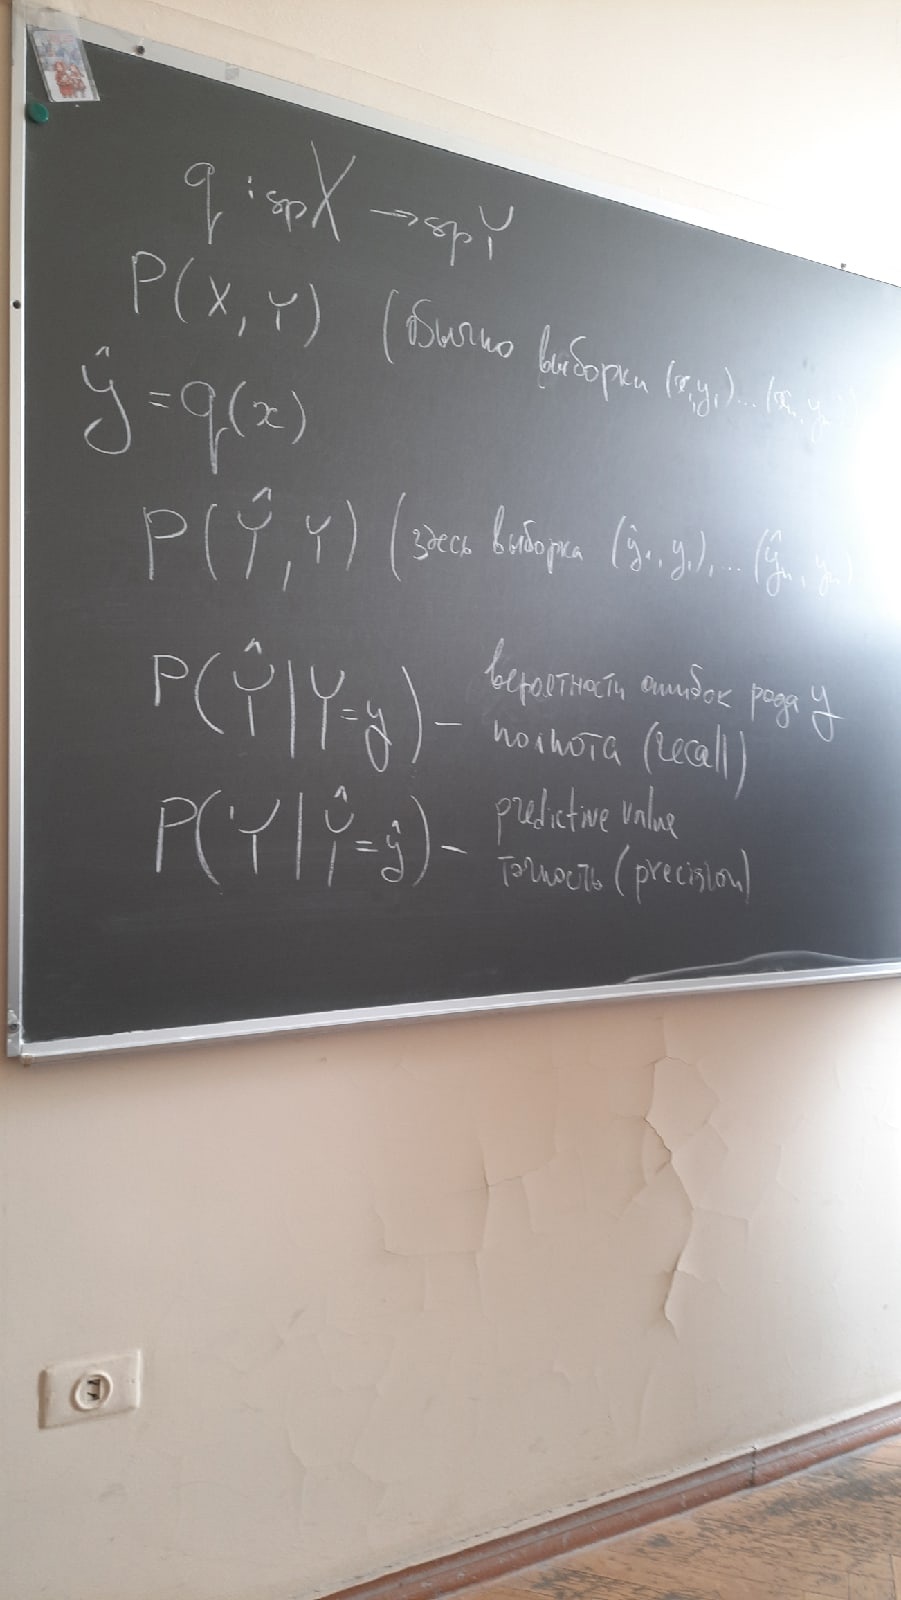 q : sp X → sp Y
P(X, Y) (обычно выборки (x₁y₁)...(xₙ, yₙ)
ŷ = q(x)
P(Ŷ, Y) (здесь выборка (ŷ₁, y₁), ... (ŷₙ, yₙ)
P(Ŷ | Y = y) – вероятности ошибок рода y
полнота (recall)
P(Y | Ŷ = ŷ) – predictive value
точность (precision)